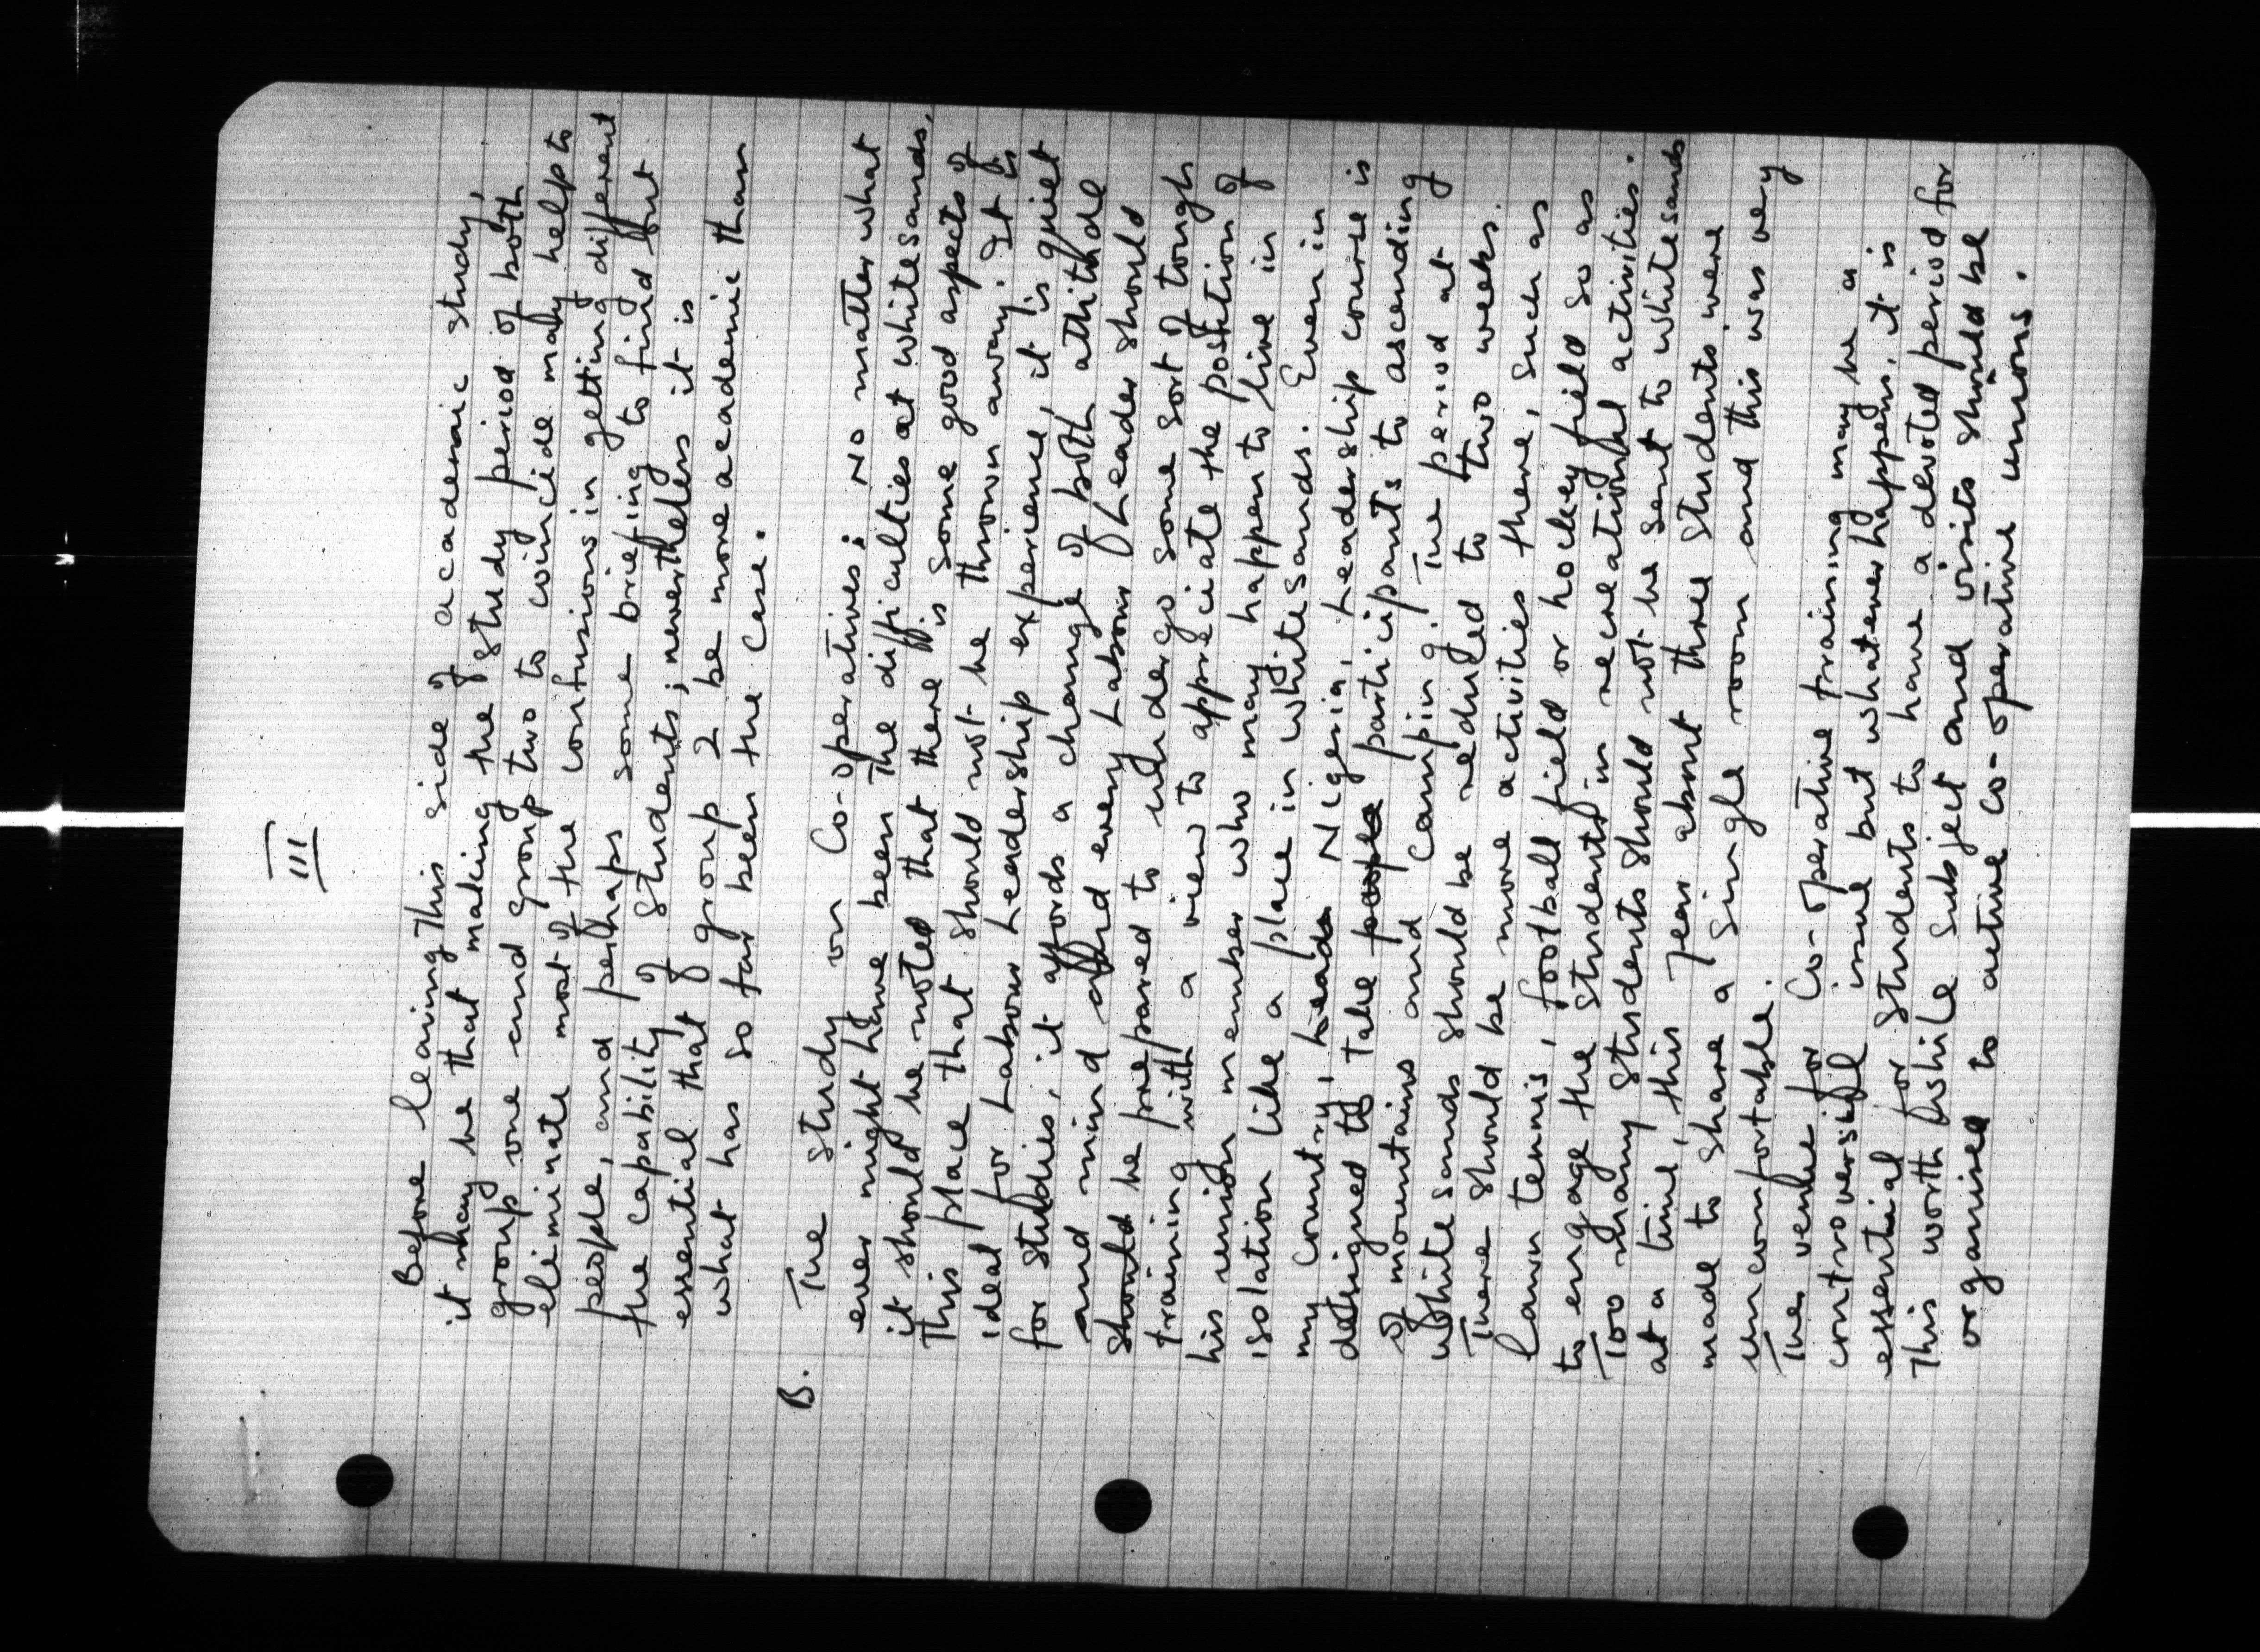 III
Before leaving this side of academic study,
it may be that making the study period of both
group one and group two to coincide may help to
eliminate most of the confusions in getting different
people, and perhaps some briefing to find out
the capability of students; nevertheless it is
essential that group 2 be more academic than
what has so far been the case.
B. The study on Co-operatives; No matter what
ever might have been the difficulties at whitesands,
it should be noted that there is some good aspects of
this place that should not be thrown away. It is
ideal for Labour Leadership experience, it is quiet
for studies, it affords a change of both attitude
and mind and every Labour Leader should
should be prepared to undergo some sort of tough
training with a view to appreciate the position of
his union member who may happen to live in
isolation like a place in Whitesands. Even in
my country, Nigeria, Leadership course is
designed to take people participants to ascending
of mountains and camping. The period at
whitesands should be reduced to two weeks.
There should be more activities there, such as
lawn tennis, football field or hockey field so as
to engage the students in recreational activities.
Too many students should not be sent to whitesands
at a time, this year about three students were
made to share a single room and this was very
uncomfortable.
The venue for Co-operative training may be a
controversial issue but whatever happens, it is
essential for students to have a devoted period for
this worth while subject and visits should be
organised to active co-operative unions.